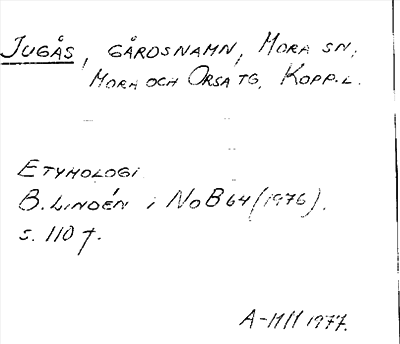 JUGÅS, GÅRDSNAMN, MORA SN,
MORA OCH ORSA TG, KOPP. L.
ETYMOLOGI
B. LINDÉN i NoB 64 (1976).
s. 110 f.
1977.